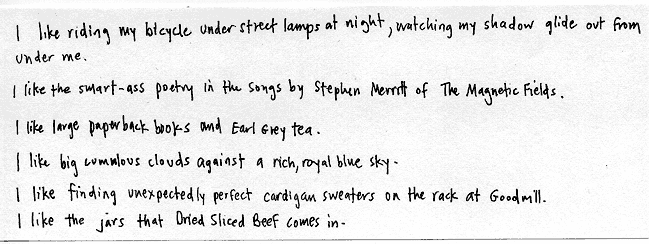 I like riding my bicycle under street lamps at night, watching my shadow glide out from
under me.
I like the smart-ass poetry in the songs by Stephen Merritt of The Magnetic Fields.
I like large paperback books and Earl Grey tea.
I like big cumulous clouds against a rich, royal blue sky.
I like finding unexpectedly perfect cardigan sweaters on the rack at Goodwill.
I like the jars that Dried Sliced Beef comes in.